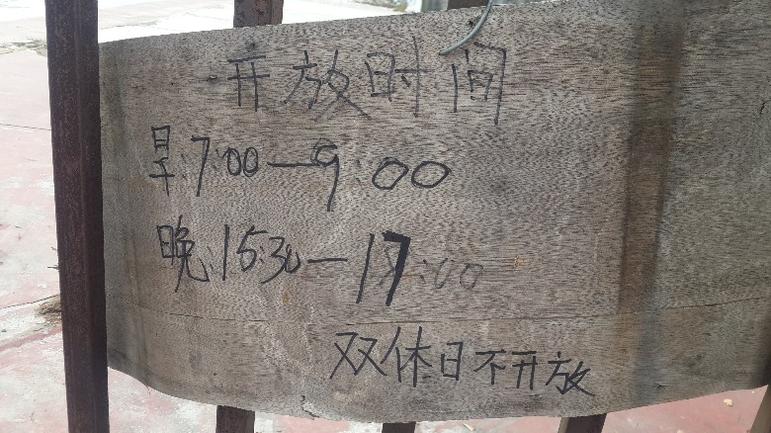 开放时间
早:7:00—9:00
晚:15:30—17:00
双休日不开放